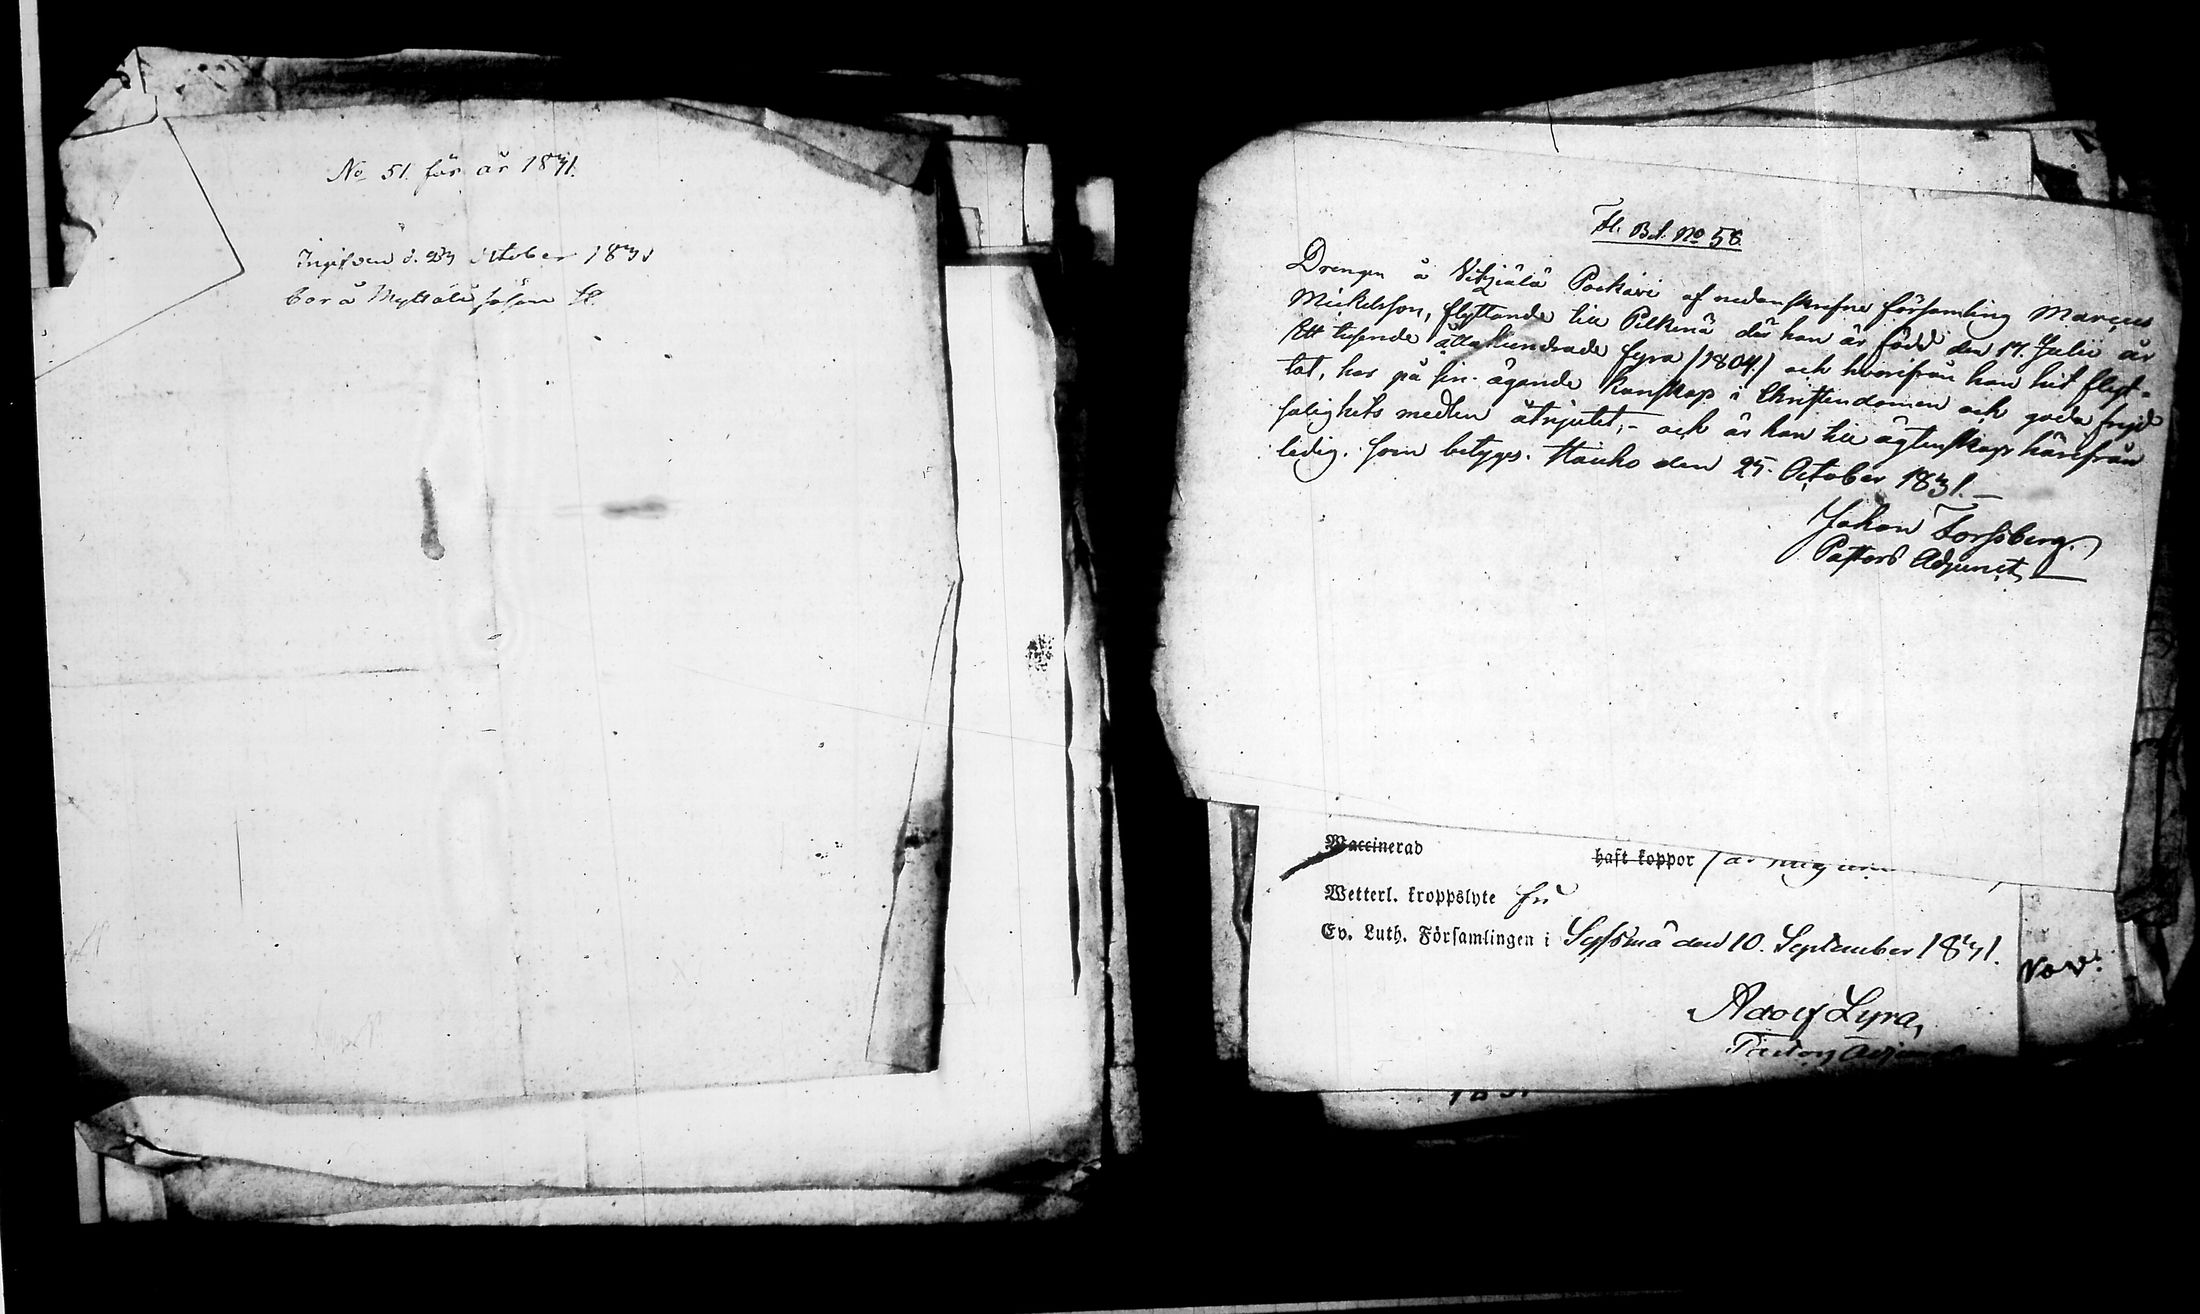 No 51. för år 1831.
Ingifven d. 23 October 1831
bor å Myttälä
Fl. Bet. No 58.
Drengen å Vitziälä Pockari af nedanskrefne församling Marcus
Mickelsson, flyttande till Pelkenä der han är född den 17. Julii år
Ett tusende åttahundrade fyra (1804.) och hvarifrån han hit flyt-
tat, har på sin ägande kunskap i Christendomen och goda frejd
salighets medlen åtnjutit,- och är han till ägtenskap härifrån
ledig. som betygas. Hauho den 25. October 1831.-
Johan Forssberg.
Pastors Adjunct
Waccinerad haft koppor
Wetterl. kroppslyte
Ev. Luth. Församlingen i Sysmä den 10. September 1831.
Nov.
Adolf Lyra,